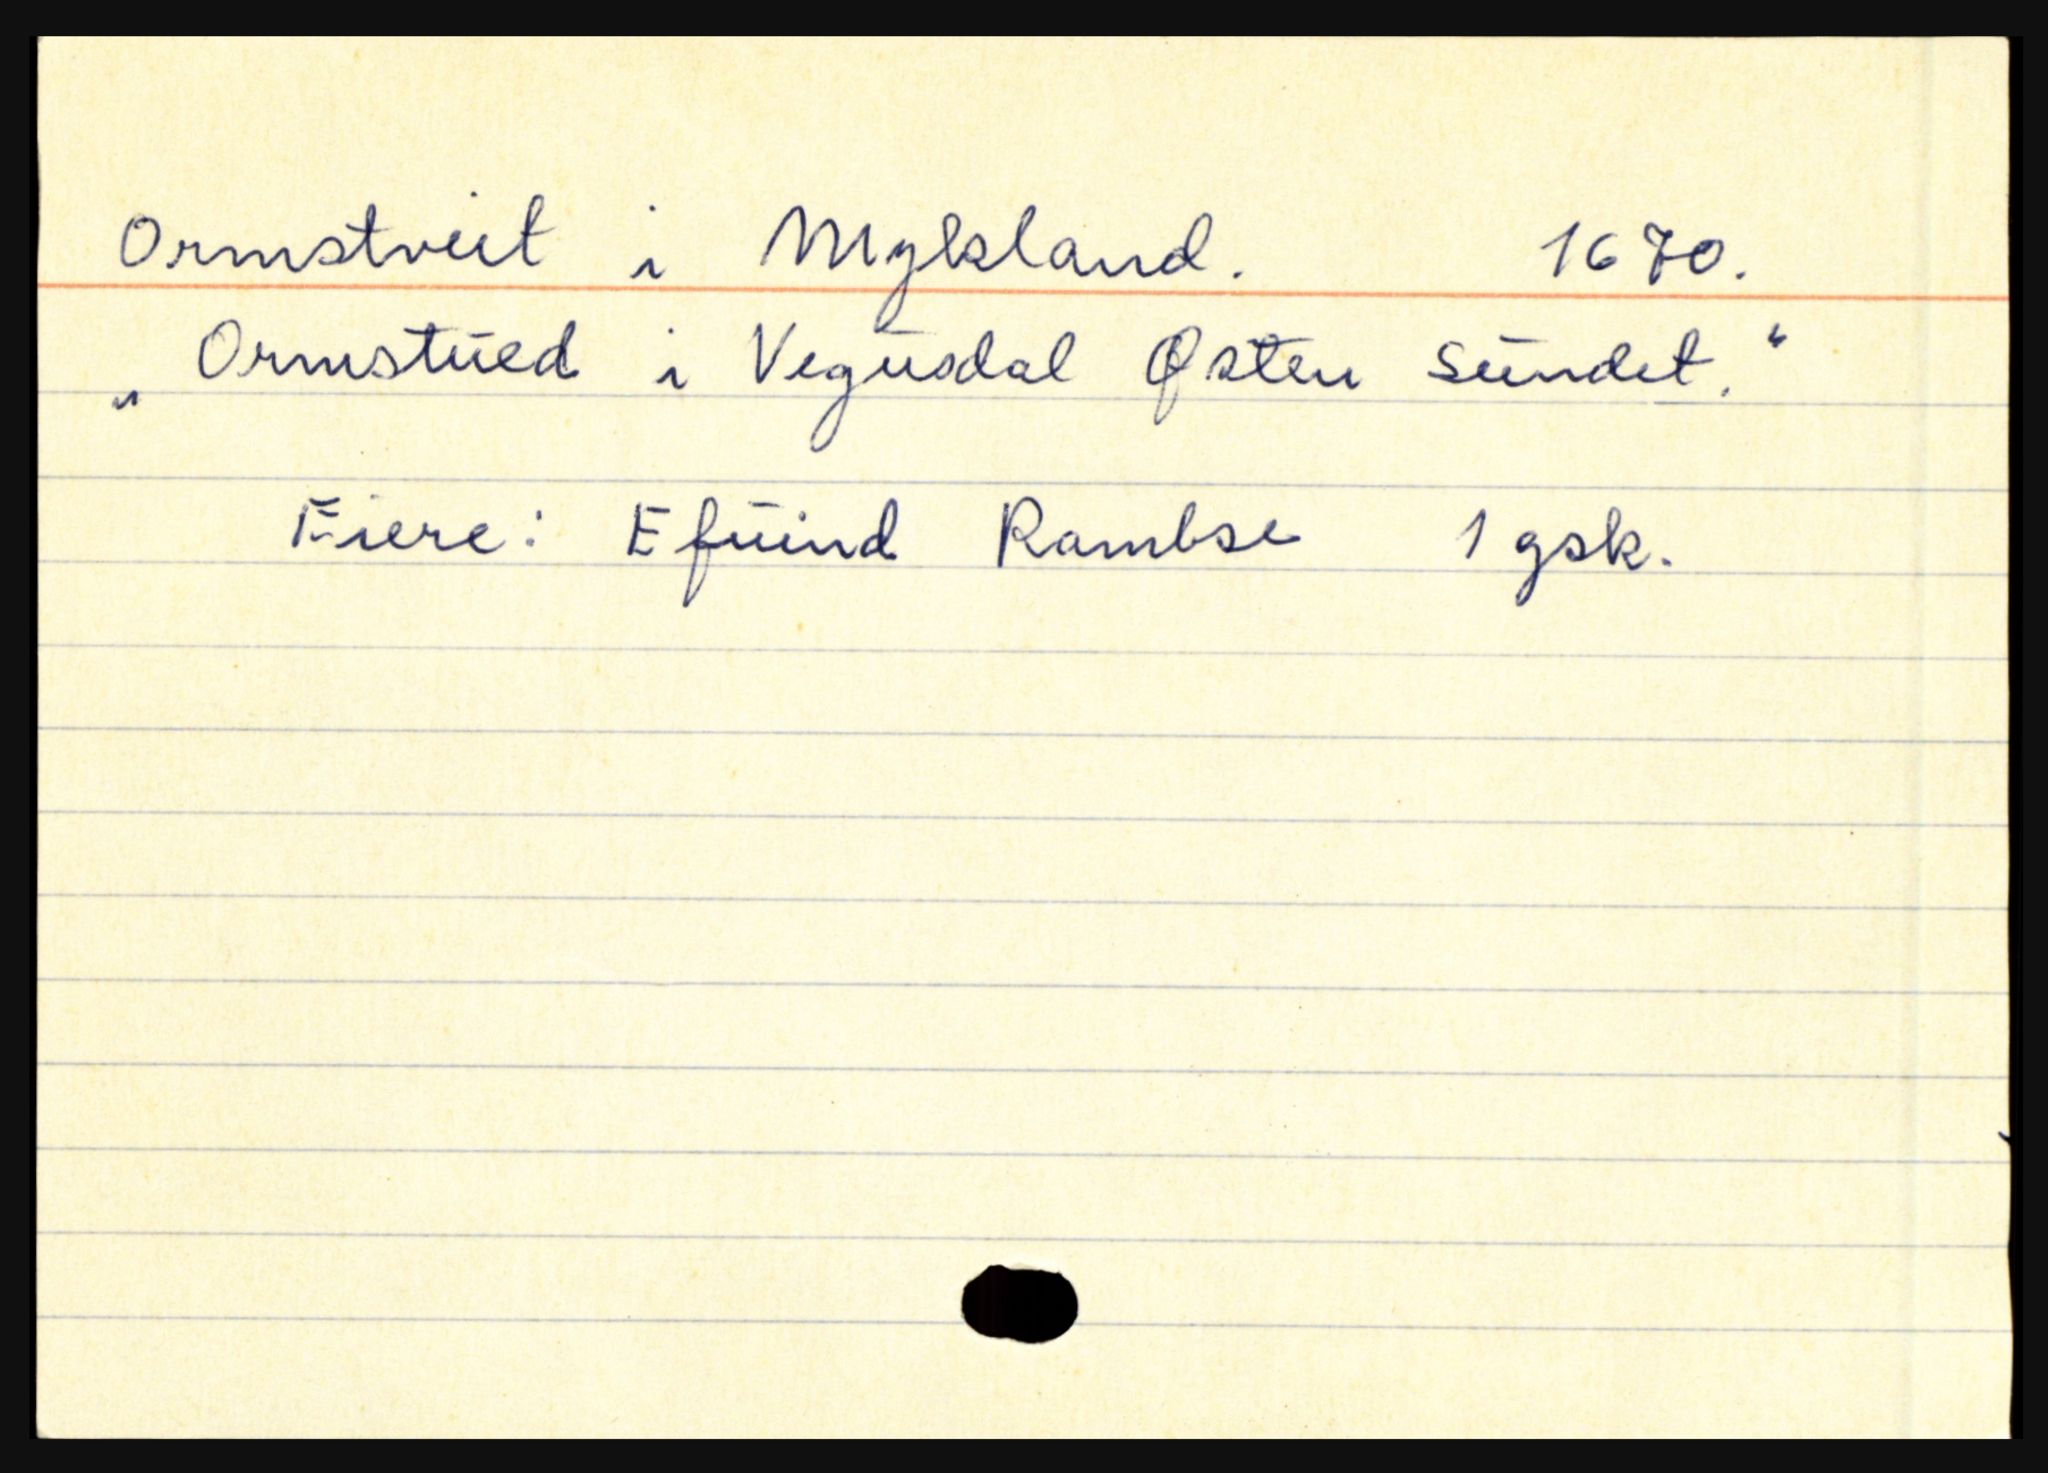 Ormstveit i Mykland. 1670.
„ Ormstued i Vegusdal Østen Sundet. “
Eiere: Efuind Rambse 1 gsk.